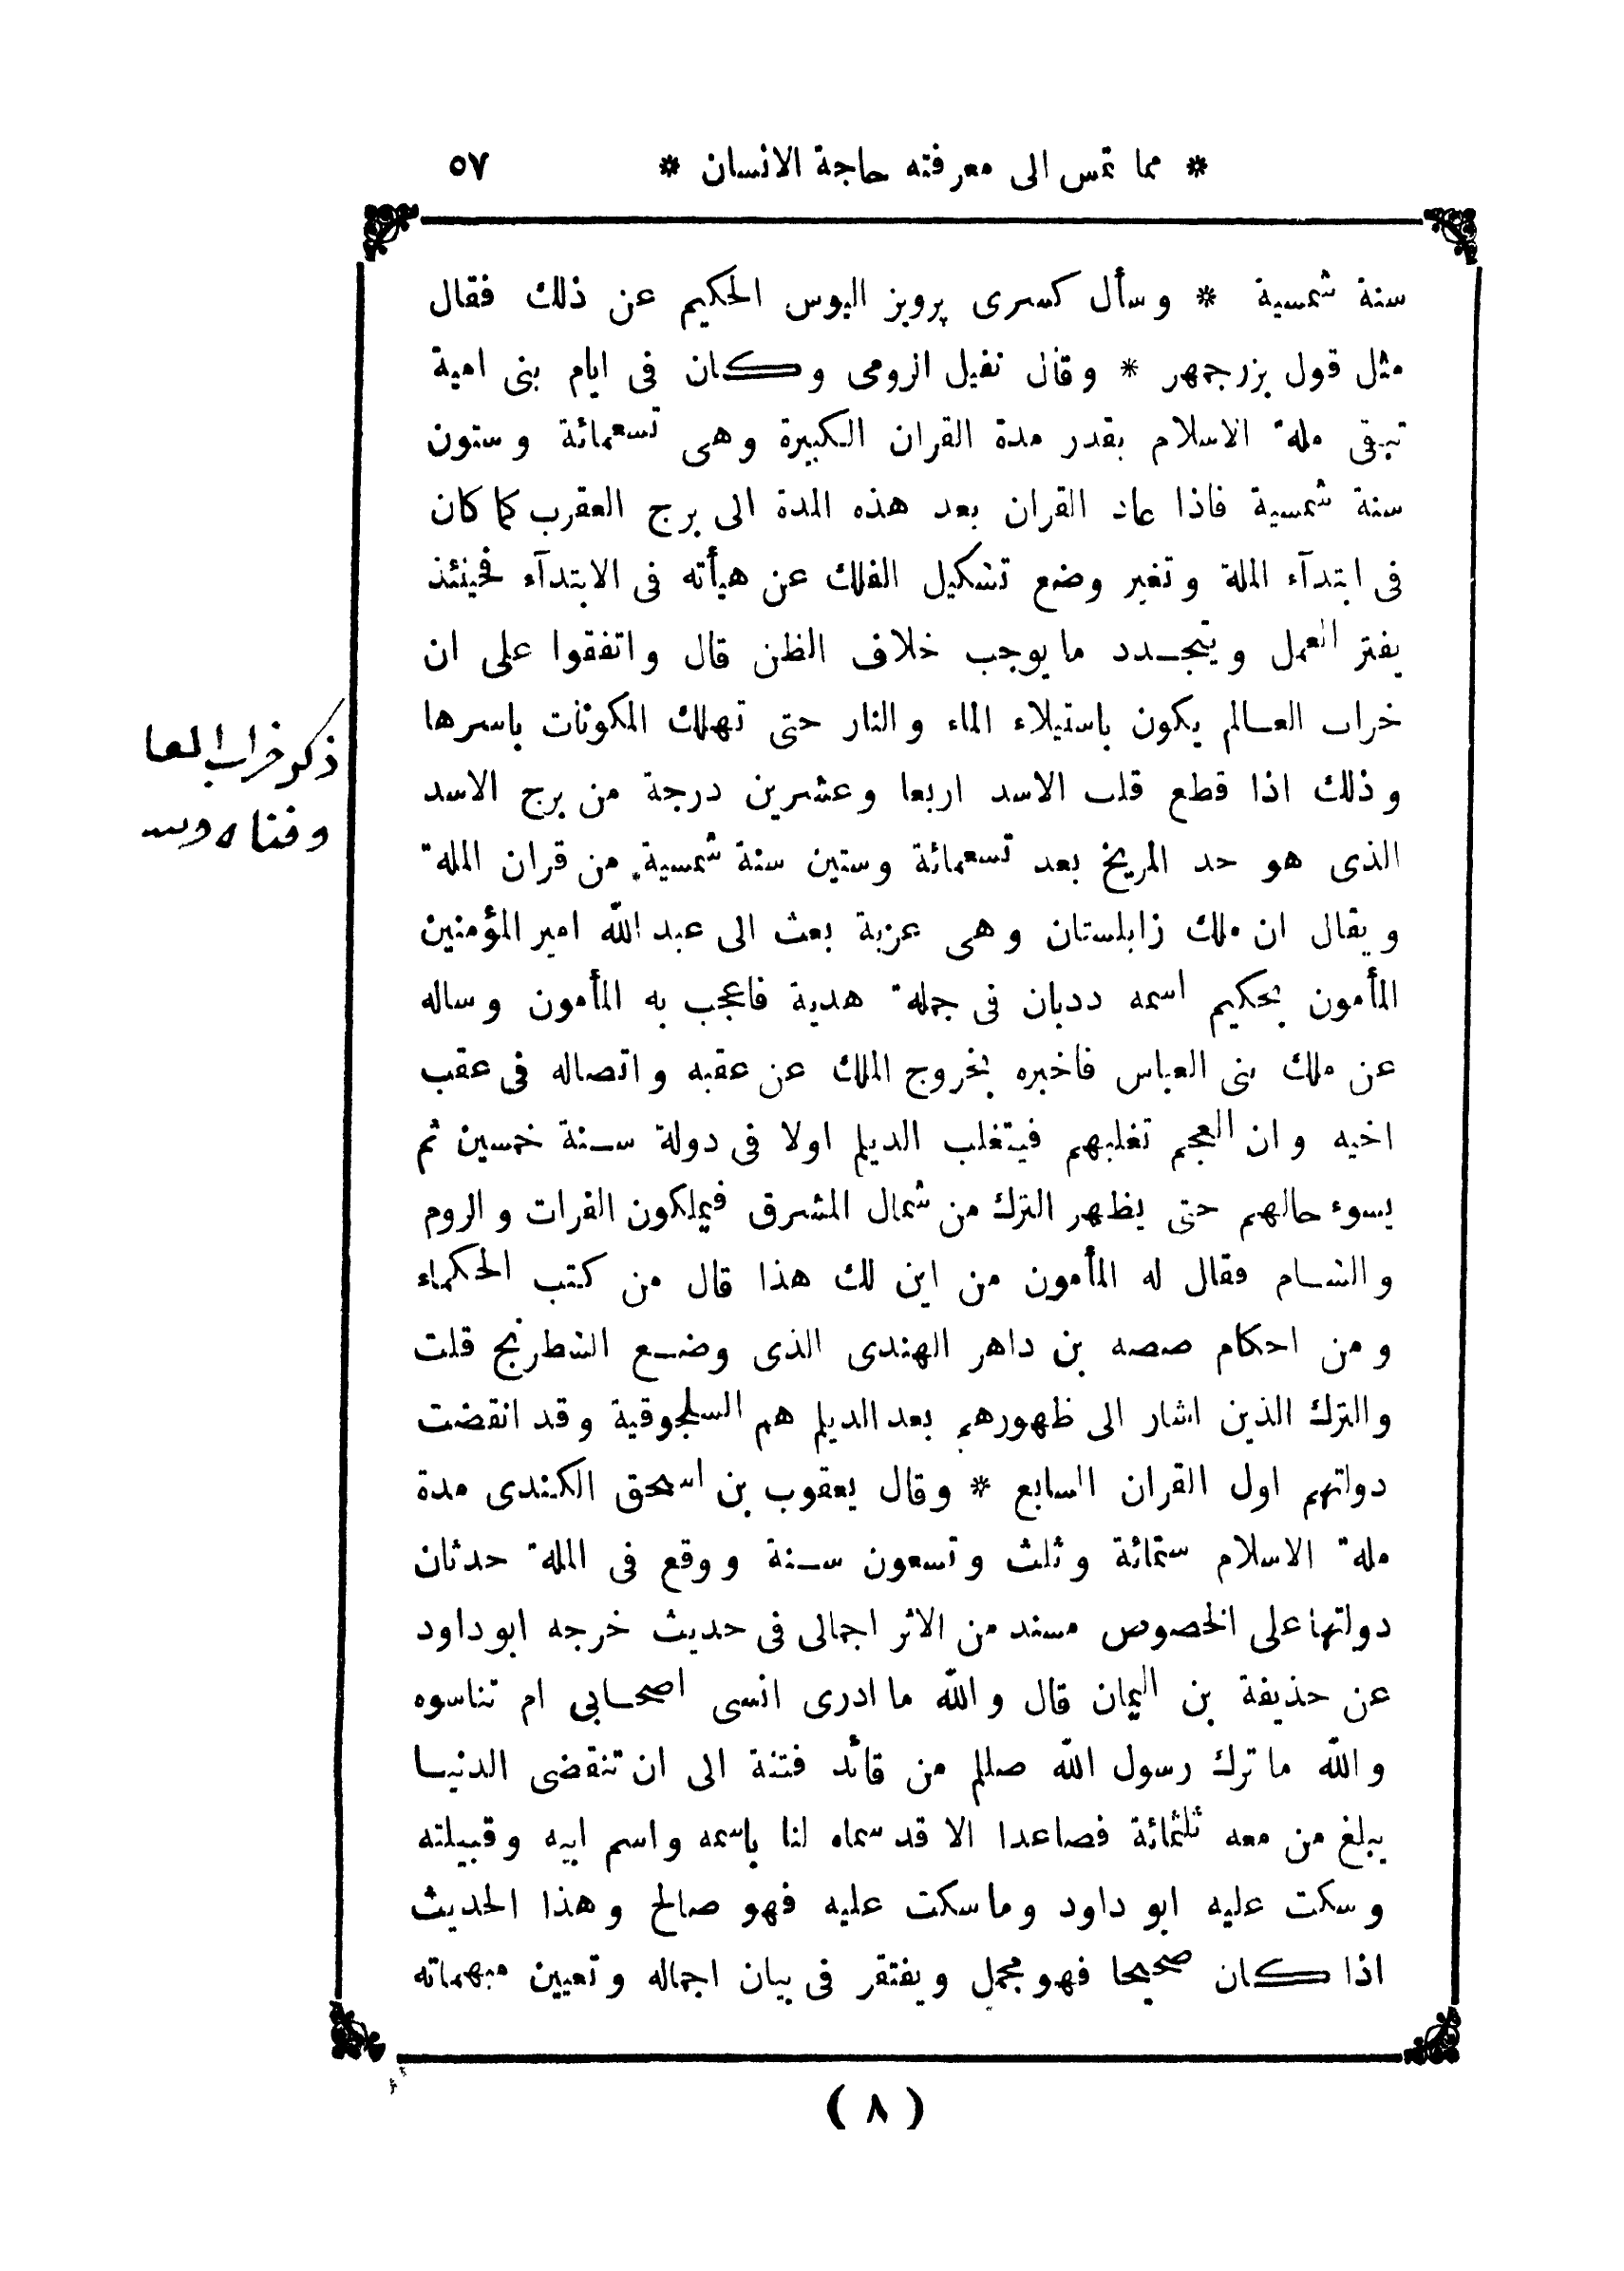 * مما تمس الى معرفته حاجة الانسان * ٥٧
سنة شمسية * وسأل كسرى پرويز اليوس الحكيم عن ذلك فقال
مثل قول بزرجمهر * وقال نفيل الرومى وكان فى ايام بنى امية
تبقى ملة الاسلام بقدر مدة القران الكبيرة وهى تسعمائة وستون
سنة شمسية فاذا عاد القران بعد هذه المدة الى برج العقرب كما كان
فى ابتدآء الملة وتغير وضع تشكيل الفلك عن هيأته فى الابتدآء فحينئذ
يفتر العمل ويتجدد ما يوجب خلاف الظن قال واتفقوا على ان
خراب العالم يكون باستيلاء الماء والنار حتى تهلك المكونات باسرها
وذلك اذا قطع قلب الاسد اربعا وعشرين درجة من برج الاسد
ذكر خراب العا
الذى هو حد المريخ بعد تسعمائة وستين سنة شمسية من قران الملة
ويقال ان ملك زابلستان وهى غزبة بعث الى عبد الله امير المؤمنين
المأمون بحكيم اسمه ددبان فى جملة هدية فاعجب به المأمون وساله
عن ملك بنى العباس فاخبره بخروج الملك عن عقبه واتصاله فى عقب
اخيه وان العجم تغلبهم فيتغلب الديلم اولا فى دولة سنة خمسين ثم
يسوء حالهم حتى يظهر الترك من شمال المشرق فيملكون الفرات والروم
والشام فقال له المأمون من اين لك هذا قال من كتب الحكماء
ومن احكام صصه بن داهر الهندى الذى وضع الشطرنج قلت
والترك الذين اشار الى ظهورهم بعد الديلم هم السلجوقية وقد انقضت
دولتهم اول القران السابع * وقال يعقوب بن اسحق الكندى مدة
ملة الاسلام ستمائة وثلث وتسعون سنة ووقع فى الملة حدثان
دولتها على الخصوص مسند من الاثر اجمالى فى حديث خرجه ابو داود
عن حذيفة بن اليمان قال والله ما ادرى انسى اصحابى ام تناسوه
والله ما ترك رسول الله صللم من قائد فتنة الى ان تنقضى الدنيا
يبلغ من معه ثلثمائة فصاعدا الا قد سماه لنا باسمه واسم ابيه وقبيلته
وسكت عليه ابو داود وما سكت عليه فهو صالح وهذا الحديث
اذا كان صحيحا فهو مجمل ويفتقر فى بيان اجماله وتعيين مبهماته
( ٨ )